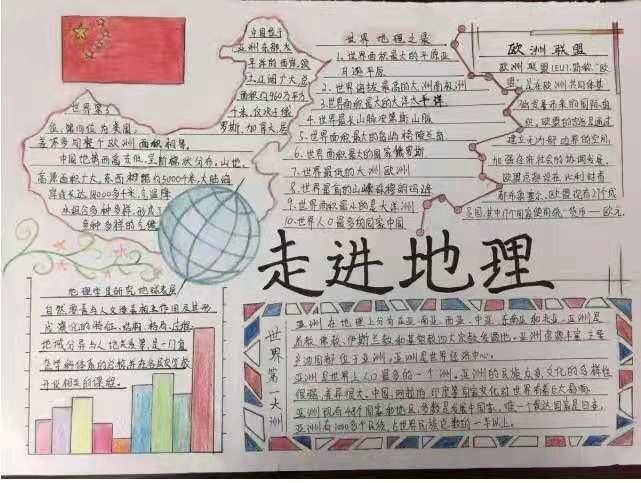 中国位于
亚洲东部，太
平洋的西岸，领
土辽阔广大，总
面积约960万平方
千米，仅次于俄
罗斯、加拿大，居
世界第三
位，第四位为美国，
差不多同整个欧洲面积相等。
中国地势西高东低，呈阶梯状分布，山地、
高原面积广大，东西相距约5000千米，大陆海
岸线长达18000多千米，气温降
水组合多种多样，形成了
多种多样的气候
世界地理之最
1.世界面积最大的平原亚
马逊平原
2.世界海拔最高的大洲南极洲
3.世界面积最大的大洋太平洋
4.世界最长山脉安第斯山脉
5.世界面积最大的岛屿格陵兰岛
6.世界面积最大的国家俄罗斯
7.世界最大的大洲亚洲
8.世界最高的山峰珠穆朗玛峰
9.世界面积最小的是大洋洲
10.世界人口最多的国家中国
欧洲联盟
欧洲联盟(EU),简称"欧
盟"，是在欧洲共同体基
建立无内部边界的空间，
加强经济社会的协调发展，
欧盟总部设在比利时首
都布鲁塞尔，欧盟现有27个成
员国，其中17个国家使用统一货币—欧元。
走进地理
地理学是研究地球表层
自然要素与人文要素相互作用及其形
成演化的特征、结构、格局、过程、
地域分异与人地关系等，是一门复
杂学科体系的总称，并在各层次学校
开设相关的课程。
世界第一大洲
亚洲在地理上分为东亚、南亚、西亚、中亚、东南亚和北亚，亚洲是
佛教、伊斯兰教和基督教的发源地。亚洲
亚洲是世界上人口最多的一个洲，亚洲的民族众多，文化的多样性
很强，差异很大，中国、阿拉伯、印度等国家文化对世界有着巨大影响，
亚洲现有48个国家和地区，多数是发展中国家，唯一个发达国家是日本，
亚洲有1000多个民族，占世界民族总数的一半以上。